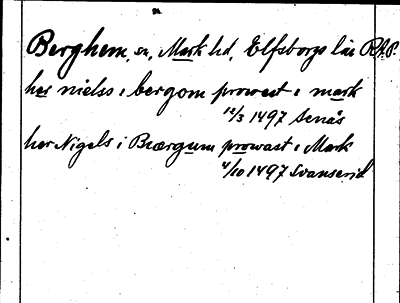 Berghem, sn, Mark hd, Elfsborgs län R.A.P.
her nielss i bergom prowest i mark
12/3 1497 Asnäs
her Nigels i Bærgum prowast i Mark
4/10 1497 Svanserid